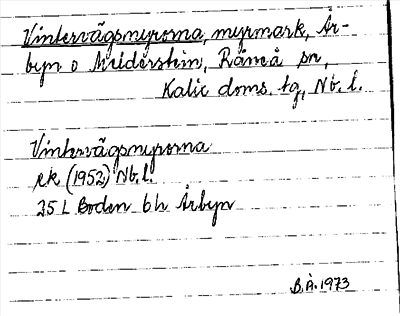 Vintervägsmyrorna, myrmark, År-
byn o Mriderstein, Råneå sn,
Kalix doms. tg, Nb. l.
Vintervägsmyrorna
ek (1952) Nb. l.
25 L Boden 6h Årbyn
B.Å. 1973